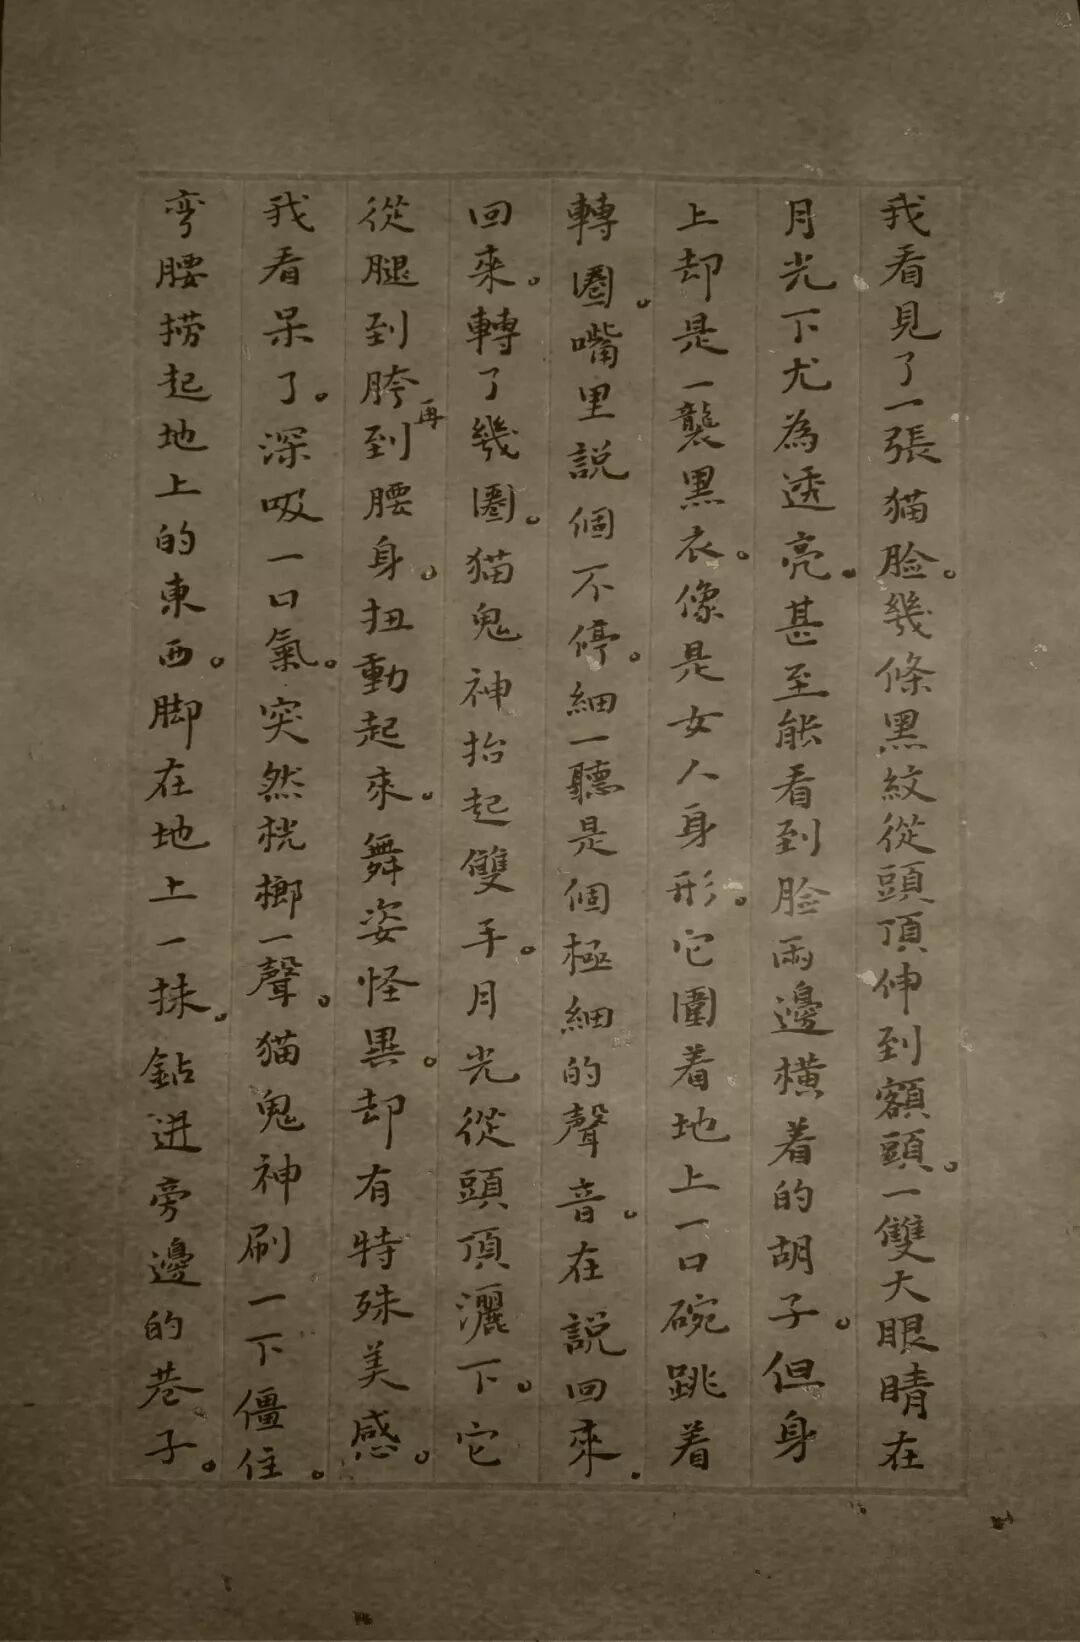 我看見了一張猫脸。幾條黑紋從頭頂伸到額頭。一雙大眼睛在
月光下尤為透亮。甚至能看到脸兩邊横着的胡子。但身
上却是一襲黑衣。像是女人身形。它圍着地上一口碗跳着
轉圈。嘴里説個不停。細一聽是個極細的聲音。在説回來.
回來。轉了幾圈。猫鬼神抬起雙手。月光從頭頂灑下。它
從腿到胯再到腰身。扭動起來。舞姿怪異。却有特殊美感。
我看呆了。深吸一口氣。突然桄榔一聲。猫鬼神刷一下僵住。
弯腰捞起地上的東西。脚在地上一抹。鉆进旁邊的巷子。